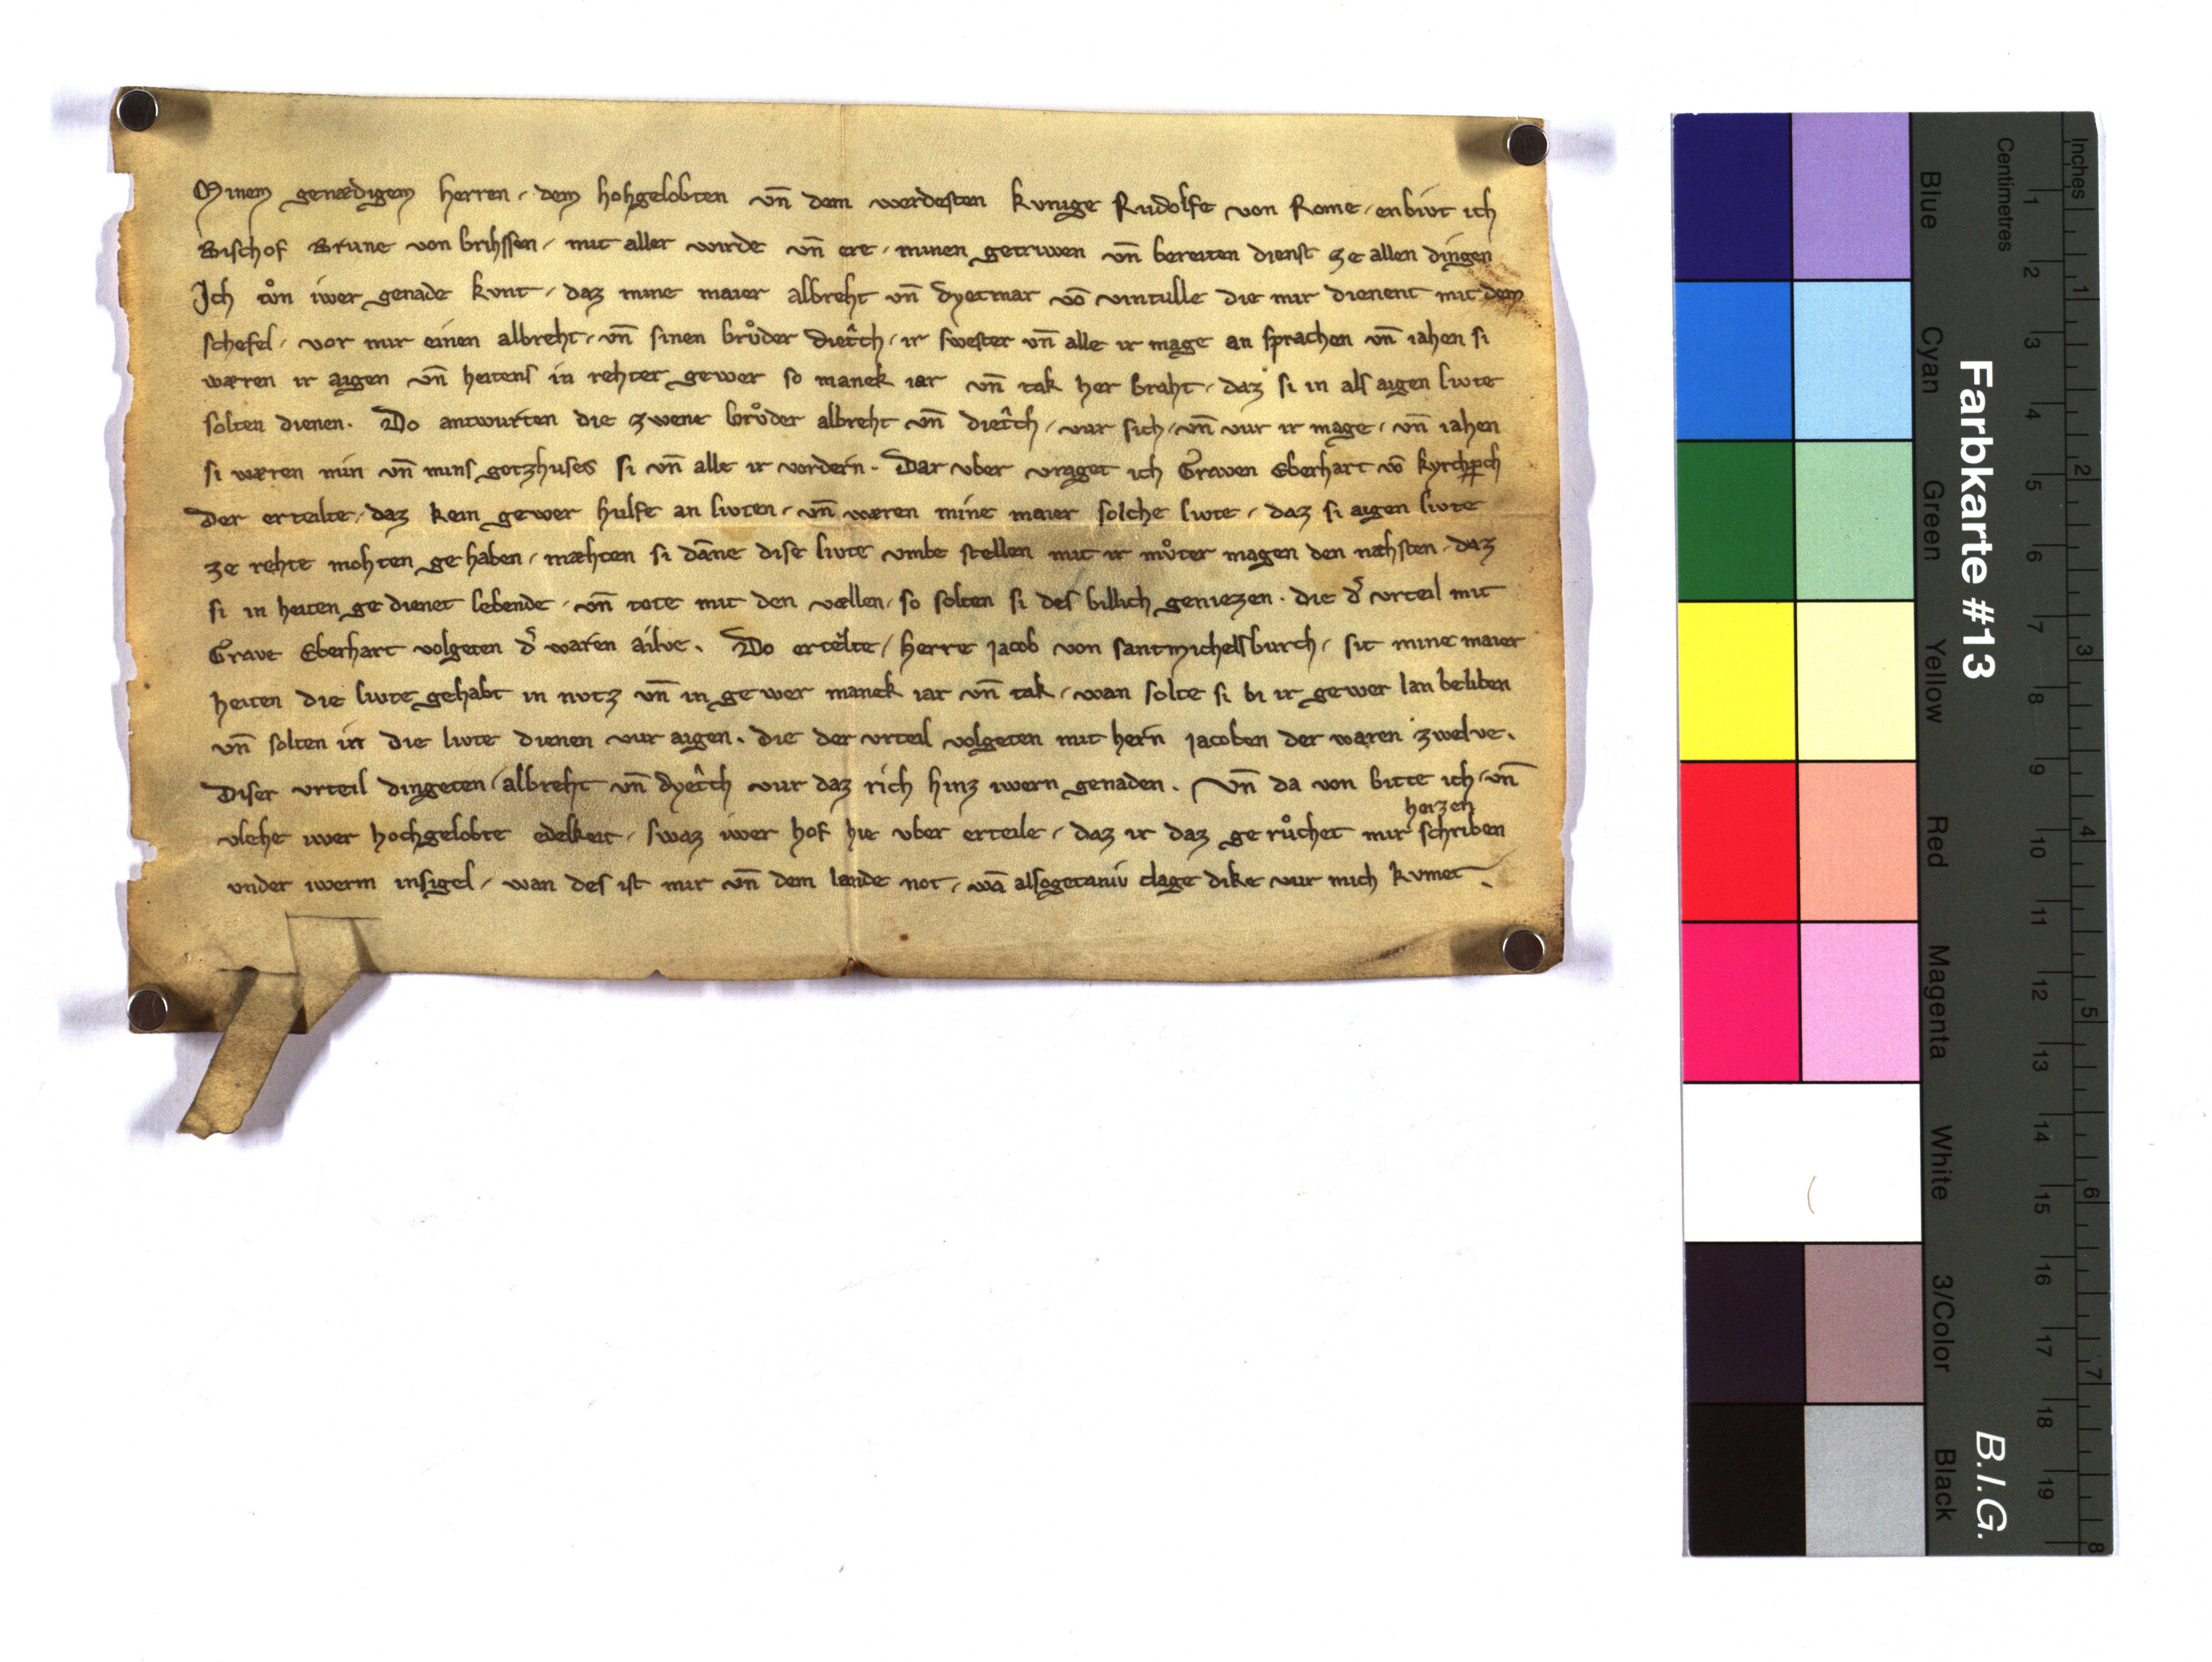 Minem genædigem herren, dem hohgelobten vn̄ dem werdesten kvnige Rudolfe von Rome, enbivt ich
Bischof Brune von brihssen, mit aller wirde vn̄ ere, minen getriwen vn̄ bereiten dienst ze allen dingen
Ich tůn iwer genade kvnt, daz mine maier albreht vn̄ dyetmar vō vintulle die mir dienent mit dem
schefel, vor mir einen albreht, vn̄ sinen brůder dietͥch, ir swester vn̄ alle ir mage an sprachen vn̄ iahen si
wæren ir aigen vn̄ heitens in rehter gewer so manek iar vn̄ tak her braht, daz si in als aigen livte
solten dienen. Do antwurten die zwene brůder albreht vn̄ dietͥch, vur sich, vn̄ vur ir mage, vn̄ iahen
si wæren min vn̄ mins gotzhuses si vn̄ alle ir vordern. Dar vber vraget ich Graven Eberhart vō kyrchp̱ch
der erteilte, daz kein gewer hulfe an livten, vn̄ wæren mine maier solche livte, daz si aigen livte
ze rehte mohten gehaben, mæhten si dāne dise livte vmbe stellen mit ir můter magen den næhsten, daz
si in heiten gedienet lebende, vn̄ tote mit den vællen, so solten si des billich geniezen. die d̓ vrteil mit
Grave Eberhart volgeten d̓ waren ailve. Do ertelͥte, herre Jacob von santmichelsburch, sit mine maier
heiten die livte gehabt in nvtz vn̄ in gewer manek iar vn̄ tak, wan solte si bi ir gewer lan beliben
vn̄ solten in die livte dienen vur aigen. die der vrteil volgeten mit hern Jacoben der waren zwelve.
Diser vrteil dingeten, albreht vn̄ dyetͥch vur daz rich hinz iwern genaden. Vn̄ da von bitte ich, vn̄
vlehe iwer hochgelobte edelkeit, swaz iwer hof hie vber erteile, daz ir daz gerůchet mir heizen schriben
vnder iwerm insigel, wan des ist mir vn̄ dem lande not, wā alsogetaniv clage dike vur mich kvmet.
Farbkarte #13
B.I.G.
Blue
Cyan
Green
Yellow
Red
Magenta
White
3/Color
Black
Centimetres
1 2 3 4 5 6 7 8 9 10 11 12 13 14 15 16 17 18 19
Inches
1 2 3 4 5 6 7 8